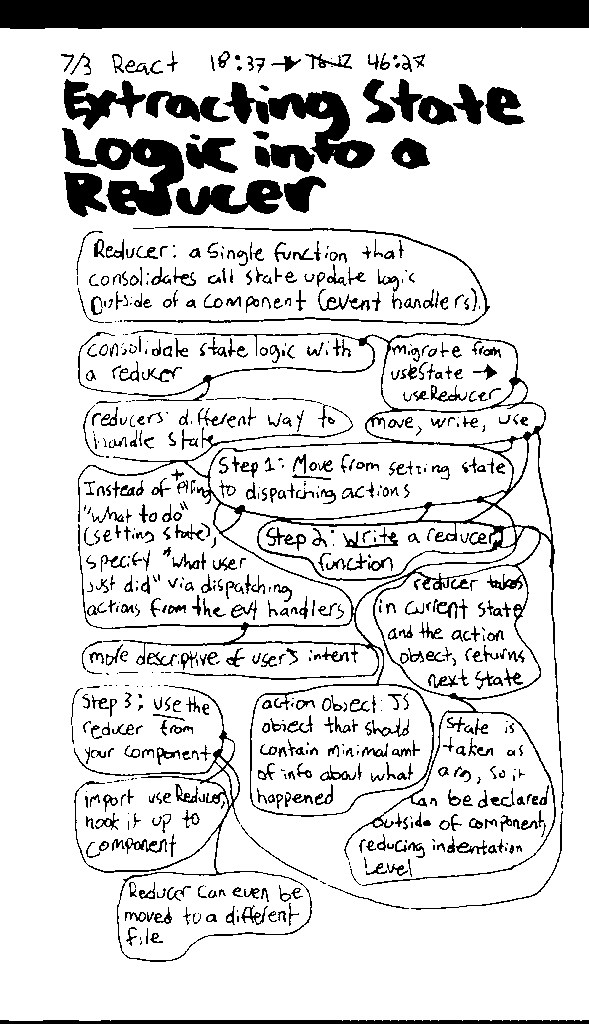 7/3 React 18:37 → 46:27
Extracting State
Logic into a
Reducer
Reducer: a single function that
consolidates all state update logic
outside of a component (event handlers).
consolidate state logic with
a reducer
migrate from
useState →
useReducer
reducers: different way to
handle state
move, write, use
Step 1: Move from setting state
to dispatching actions
Instead of telling
"what to do"
(setting state),
specify "what user
just did" via dispatching
actions from the evt handlers
Step 2: Write a reducer
function
reducer takes
in current state
and the action
object, returns
next state
more descriptive of user's intent
Step 3: use the
reducer from
your component
action object: JS
object that should
contain minimal amt
of info about what
happened
State is
taken as
arg, so it
can be declared
outside of component,
reducing indentation
level
import useReducer,
hook it up to
component
Reducer can even be
moved to a different
file